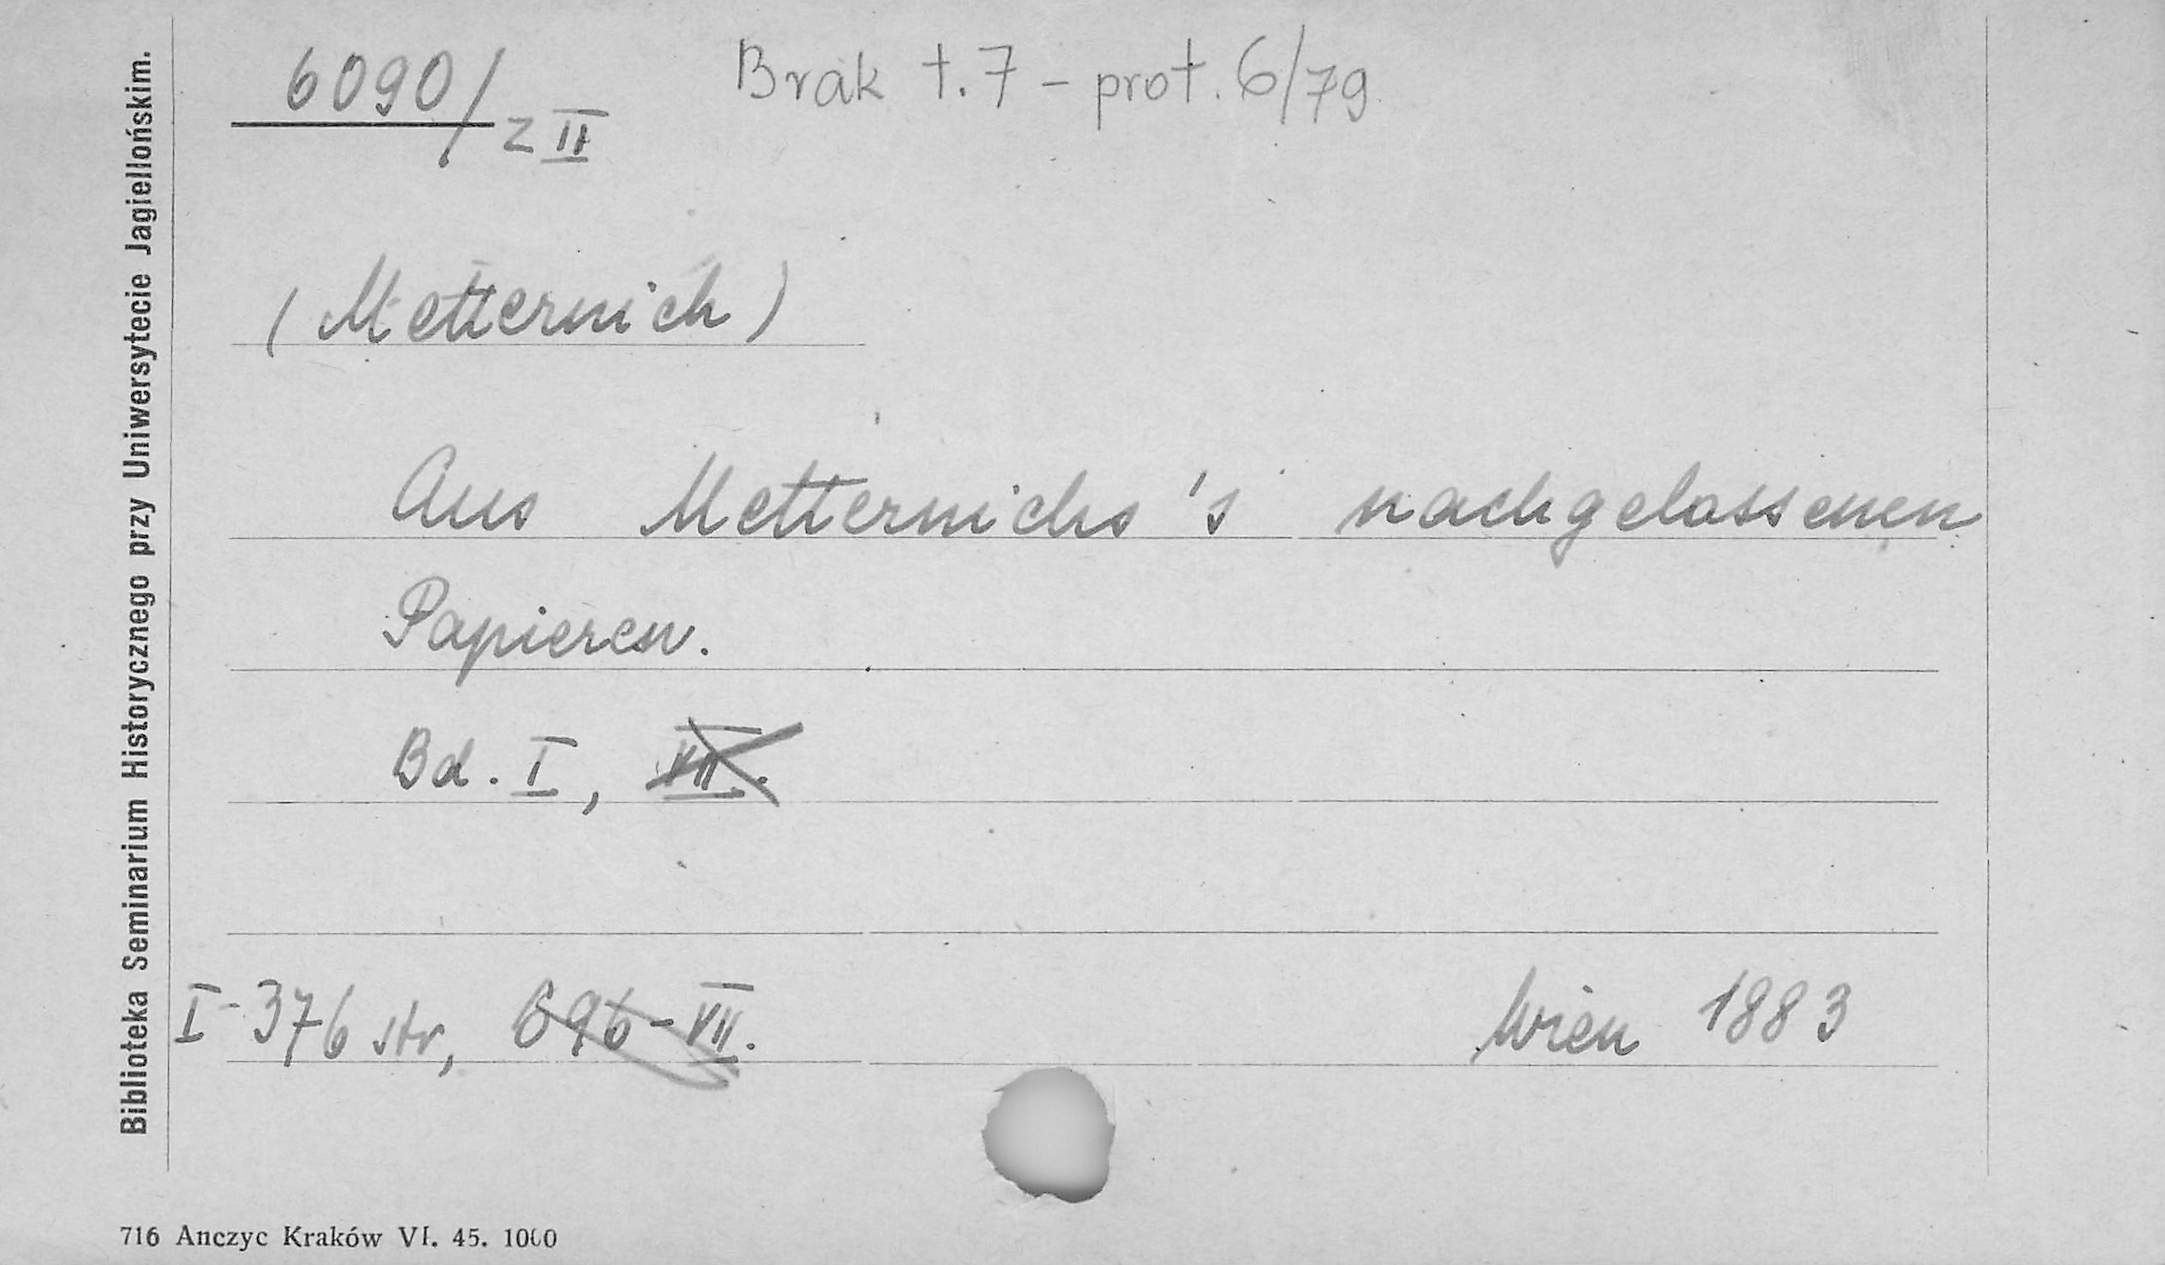 6090/z II
Brak t. 7 - prot. 6/79
(Metternich)
Aus Metternichs's nachgelassenen
Papieren.
Bd. I, VII.
I - 376 str, 696 - VII.
Wien 1883
Biblioteka Seminarium Historycznego przy Uniwersytecie Jagiellońskim.
716 Anczyc Kraków VI. 45. 1000